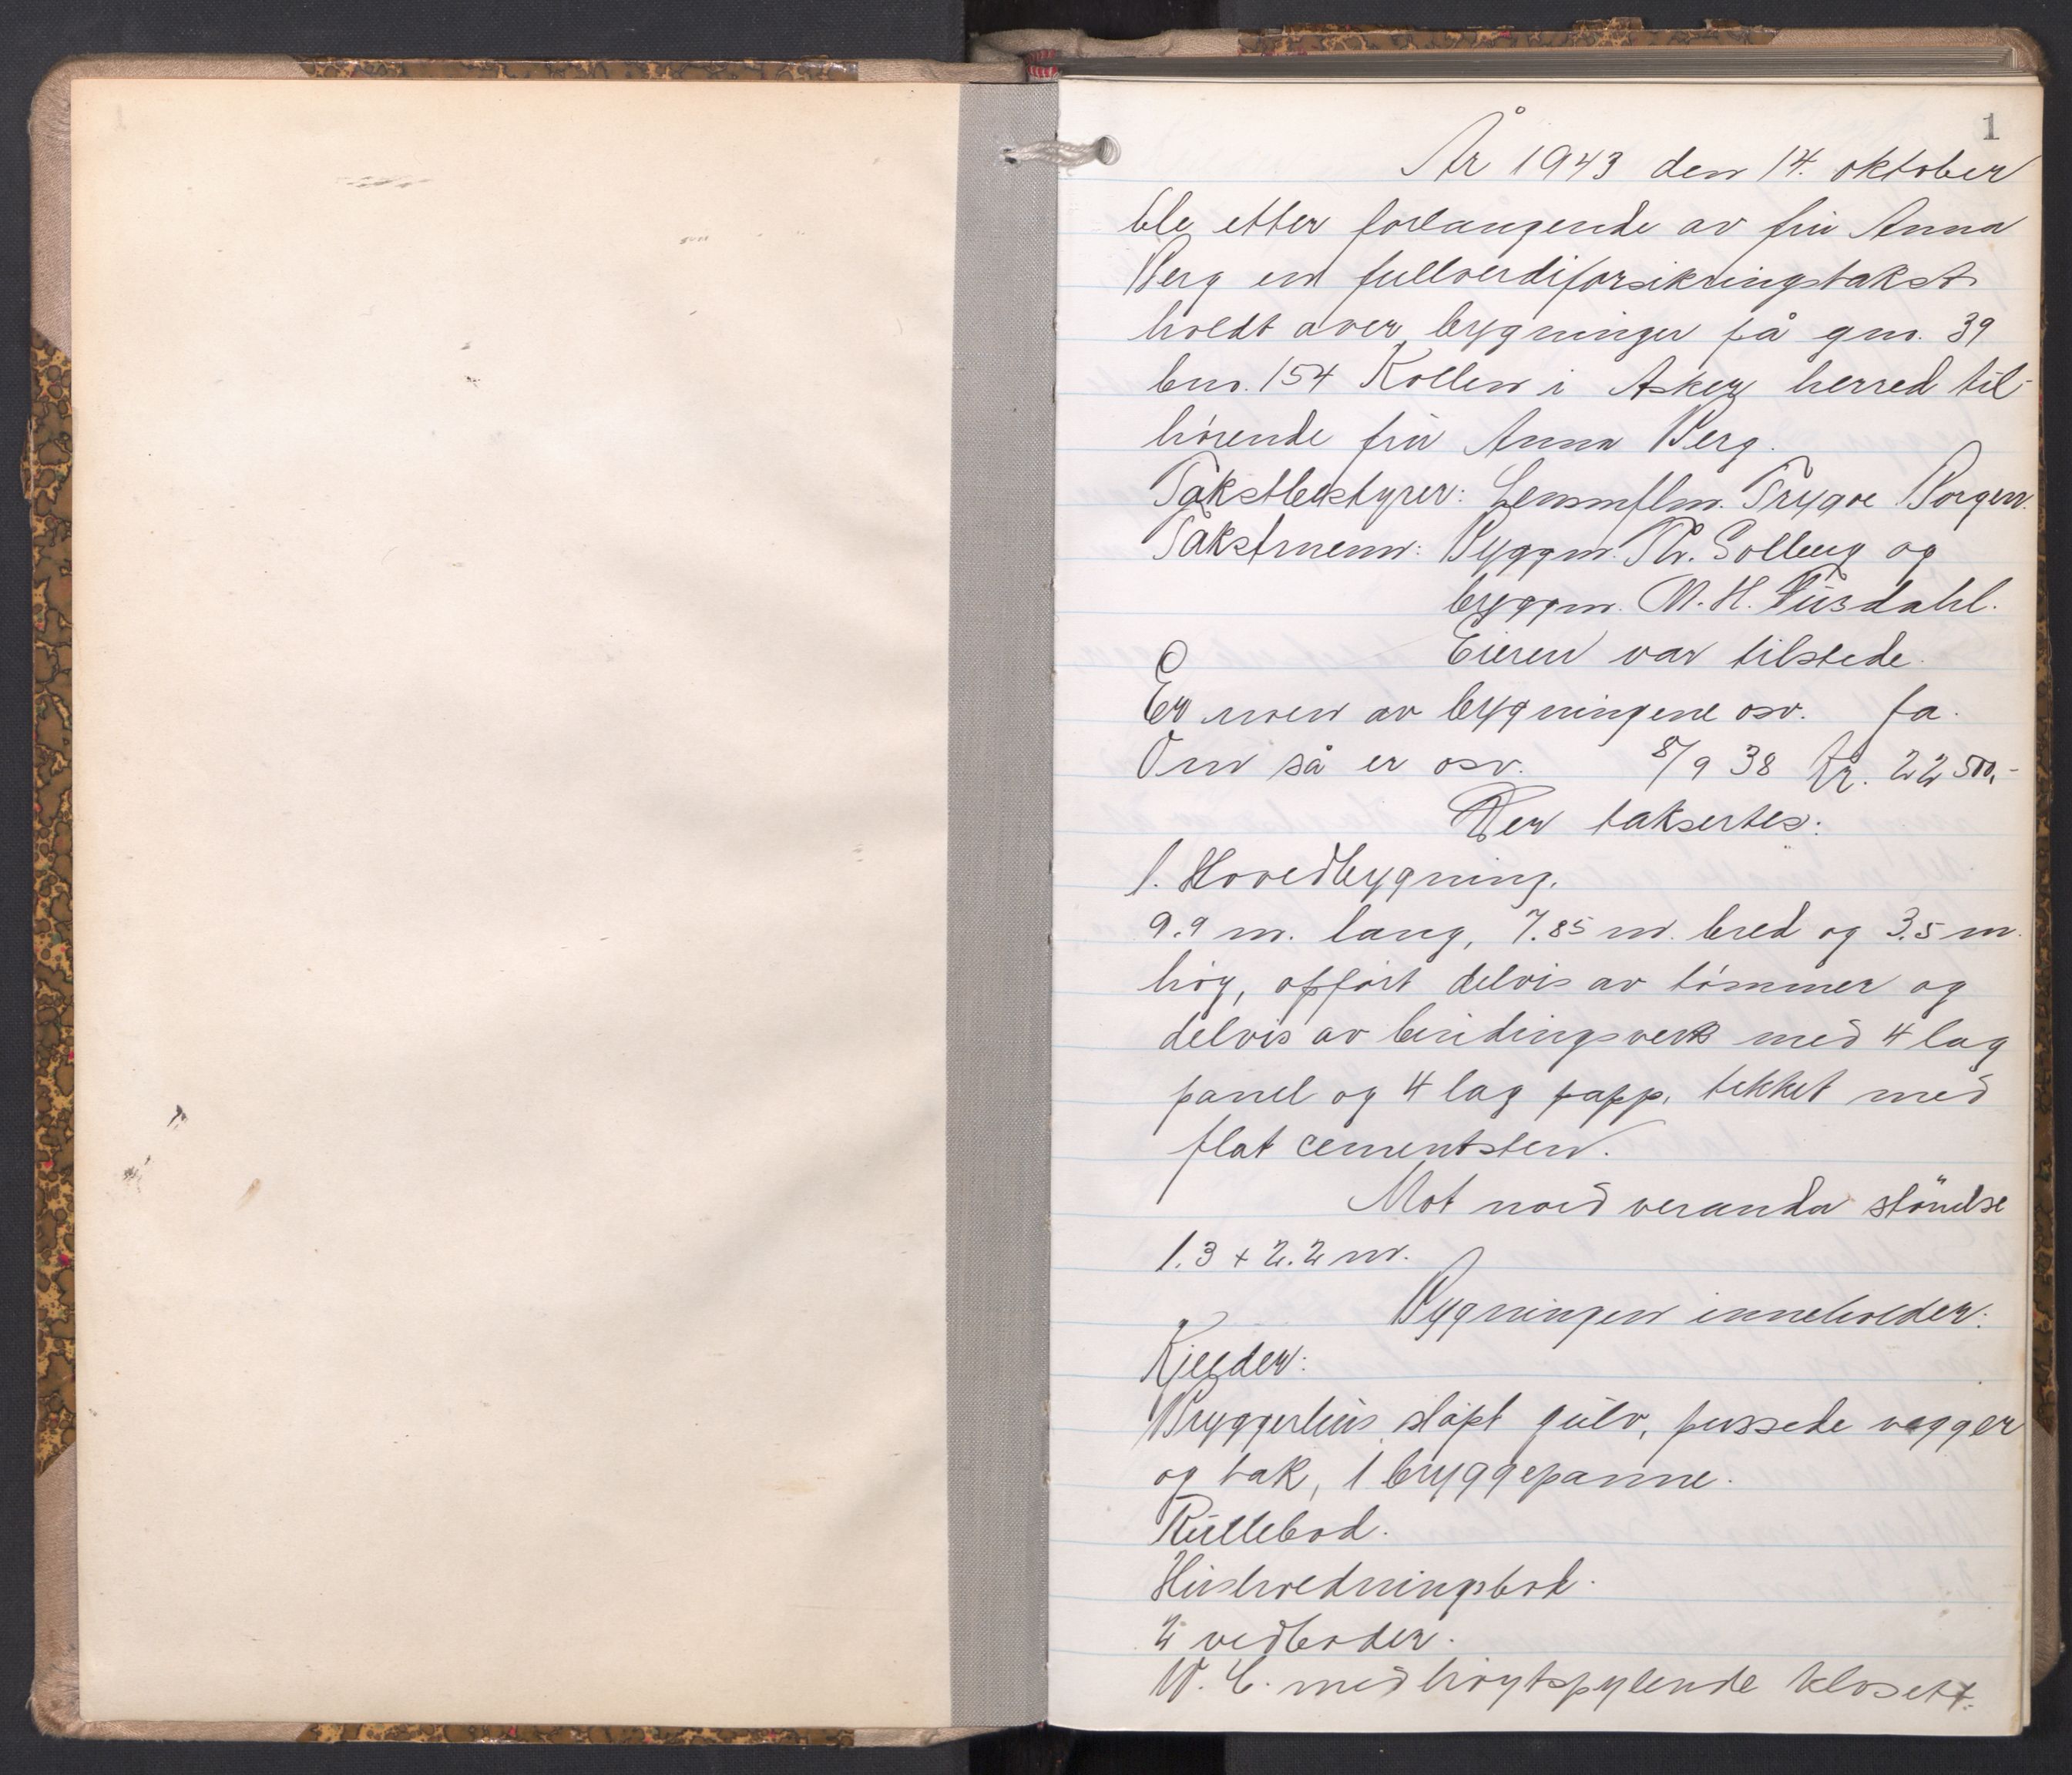 1
År 1943 den 14. oktober
ble etter forlangende av fru Anna
Berg en fullverdiforsikringstakst
holdt over bygninger på gnr. 39
bnr. 154 Kollen i Asker herred til-
hørende fru Anna Berg.
Takstbestyrer: Lensmflm. Trygve Borgen.
Takstmenn: Byggm. Th. Solberg og
byggm. M. H.
Eieren var tilstede.
Er noen av bygningene osv. Ja.
Om så er osv. 8/9 38 kr. 22500,-
Der taksertes:
1. Hovedbygning.
9.9 m. lang, 7.85 m. bred og 3.5 m.
høy, opført delvis av tømmer og
delvis av bindingsverk med 4 lag
panel og 4 lag papp, tekket med
flat cementsten.
Mot nord veranda størrelse
1.3 + 2.2 m.
Bygningen inneholder:
Kjeller:
Bryggerhus støpt gulv, pussede vegger
og tak, 1 bryggepanne.
Rullebod.
Husholdningsbod.
2 vedboder.
W. C. med høytspylende klosett.